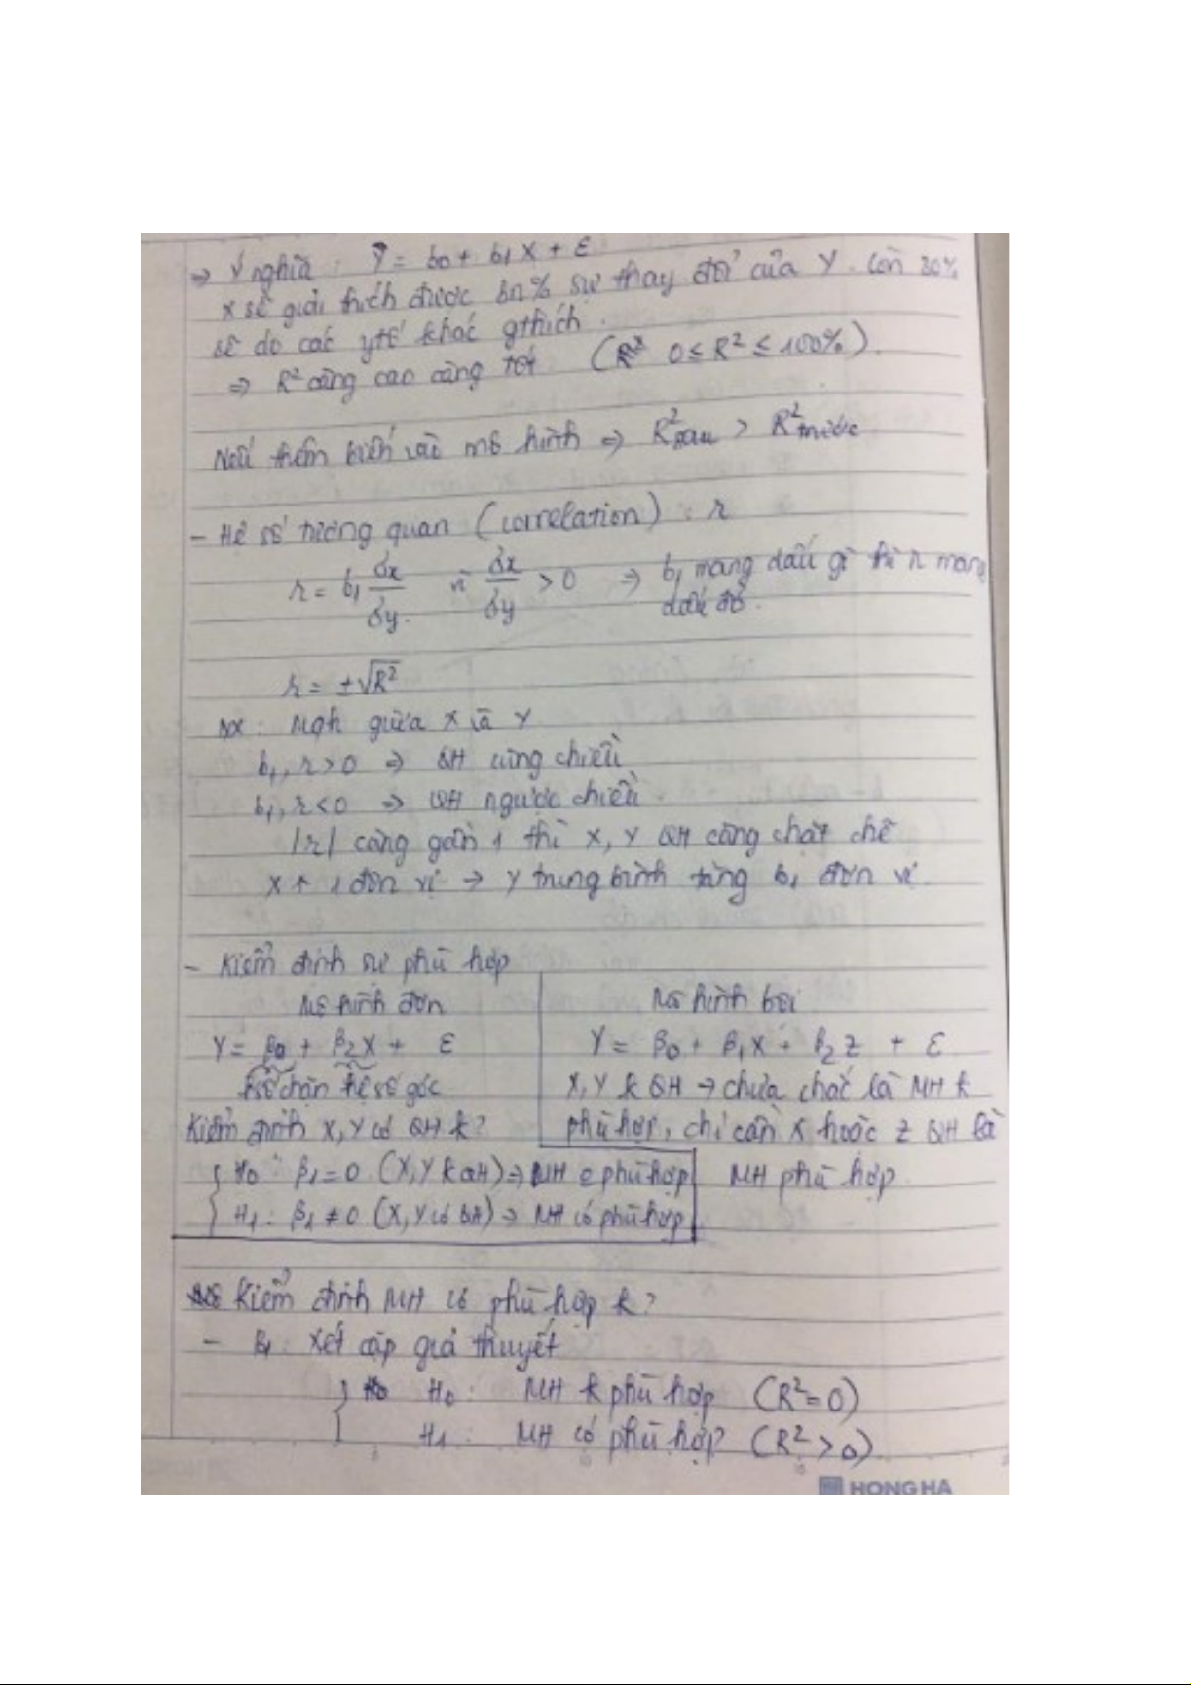 ⇒ Ý nghĩa : Ŷ = b0 + b1 X + ε
X sẽ giải thích được 80% sự thay đổi của Y. Còn 20%
sẽ do các ytố khác gthích.
⇒ R² càng cao càng tốt (R² 0 ≤ R² ≤ 100%)
Nếu thêm biến vào mô hình ⇒ R²sau > R²trước
- Hệ số tương quan (correlation) : r
r = b1 σx/σy vì σx/σy > 0 ⇒ b1 mang dấu gì thì r mang
dấu đó.
r = ±√R²
NX : MQH giữa X và Y
b1, r > 0 ⇒ QH cùng chiều
b1, r < 0 ⇒ QH ngược chiều.
|r| càng gần 1 thì X, Y QH càng chặt chẽ
X ↑ 1 đơn vị → Y trung bình tăng b1 đơn vị.
- Kiểm định sự phù hợp
Mô hình đơn
Y = β0 + β2X + ε
hsố chặn hệ số góc
Kiểm định X, Y có QH k?
{ H0 : β1 = 0 (X, Y k QH) ⇒ MH k phù hợp
H1 : β1 ≠ 0 (X, Y có QH) ⇒ MH có phù hợp
Mô hình bội
Y = β0 + β1X + β2 Z + ε
X, Y k QH → chưa chắc là MH k
phù hợp, chỉ cần X hoặc Z QH là
MH phù hợp.
Kiểm định MH có phù hợp k?
- B1 : Xét cặp giả thuyết
{ H0 : MH k phù hợp (R² = 0)
H1 : MH có phù hợp (R² > 0)
HONG HA